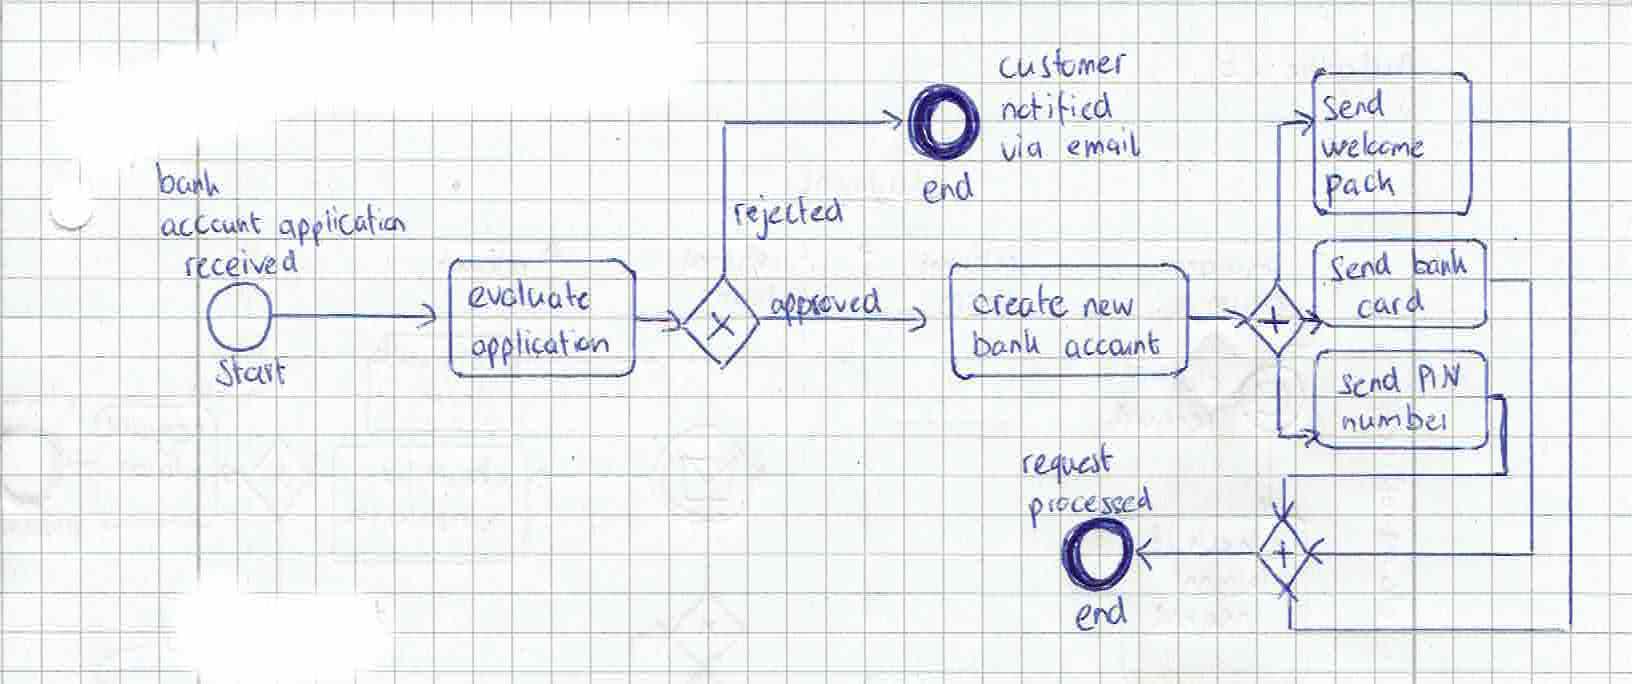 bank
account application
received
Start
evaluate
application
X
rejected
approved
customer
notified
via email
end
create new
bank account
+
Send
welcome
pack
Send bank
card
send PIN
number
+
request
processed
end